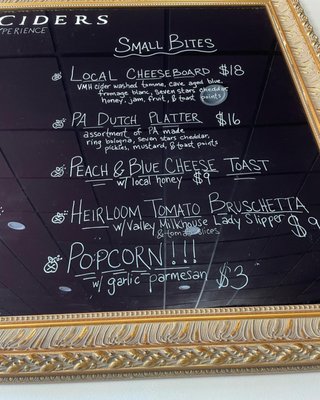 CIDERS
XPERIENCE
SMALL BITES
LOCAL CHEESEBOARD $18
VMH cider washed tomme, cave aged blue,
fromage blanc, seven stars cheddar,
honey, jam, fruit, & toast points
PA DUTCH PLATTER $16
assortment of PA made
ring bologna, seven stars cheddar,
pickles, mustard, & toast points
PEACH & BLUE CHEESE TOAST
w/ local honey $9
HEIRLOOM TOMATO BRUSCHETTA
w/ Valley Milkhouse Lady Slipper $9
& tomato slices
POPCORN!!!
w/ garlic parmesan $3